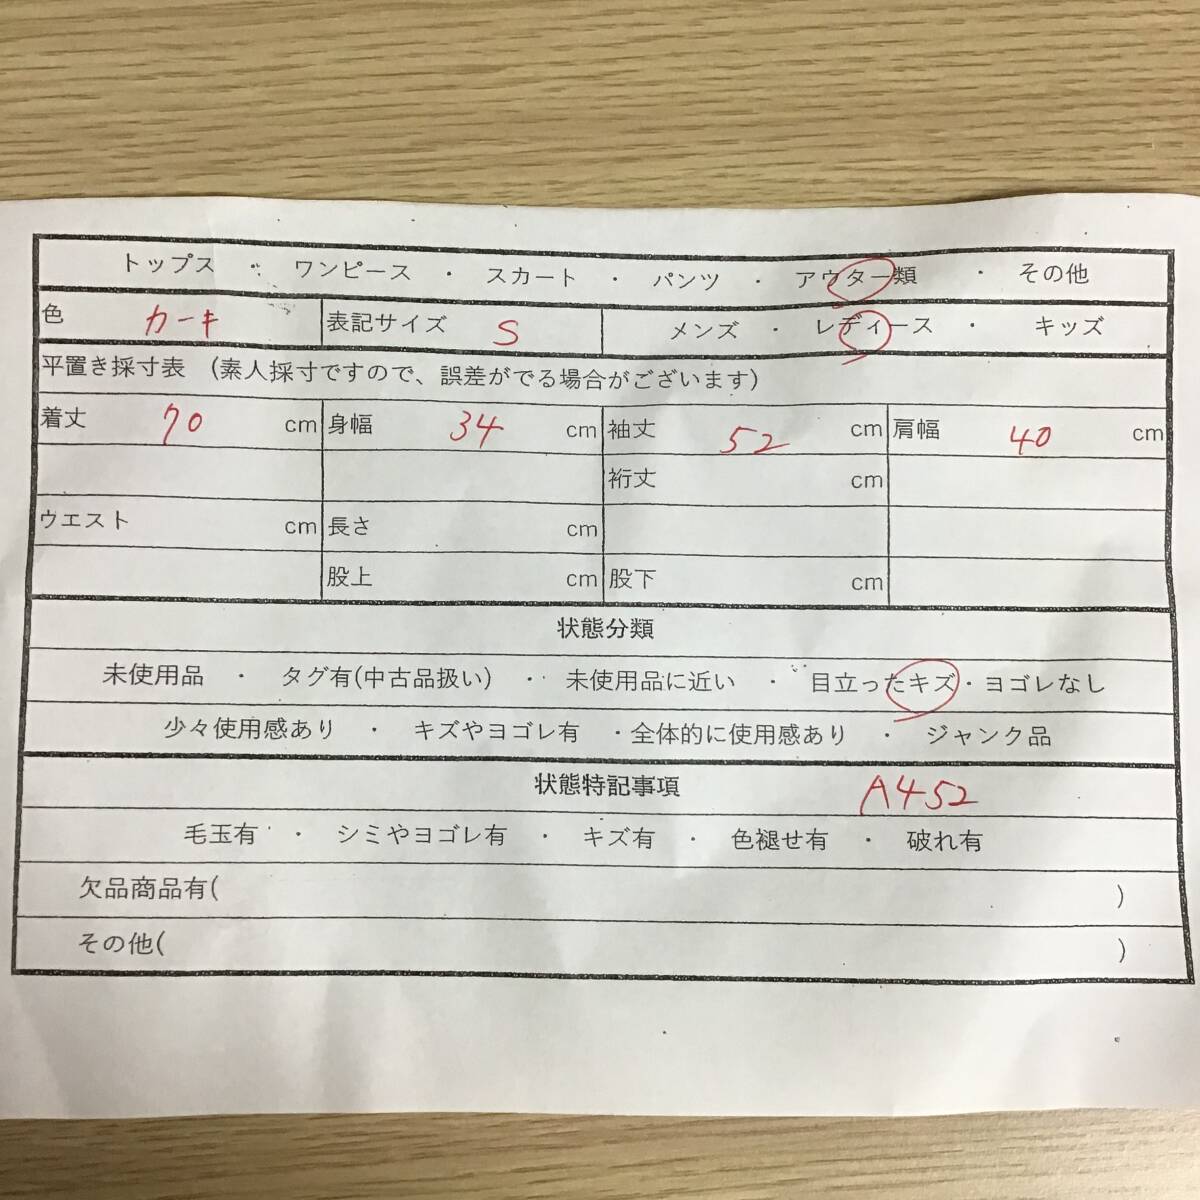 トップス ・ ワンピース ・ スカート ・ パンツ ・ アウター類 ・ その他
色 カーキ 表記サイズ S メンズ ・ レディース ・ キッズ
平置き採寸表 (素人採寸ですので、誤差がでる場合がございます)
着丈 70 cm 身幅 34 cm 袖丈 52 cm 肩幅 40 cm
裄丈 cm
ウエスト cm 長さ cm
股上 cm 股下 cm
状態分類
未使用品 ・ タグ有(中古品扱い) ・ 未使用品に近い ・ 目立ったキズ・ヨゴレなし
少々使用感あり ・ キズやヨゴレ有 ・全体的に使用感あり ・ ジャンク品
状態特記事項 A452
毛玉有 ・ シミやヨゴレ有 ・ キズ有 ・ 色褪せ有 ・ 破れ有
欠品商品有( )
その他( )